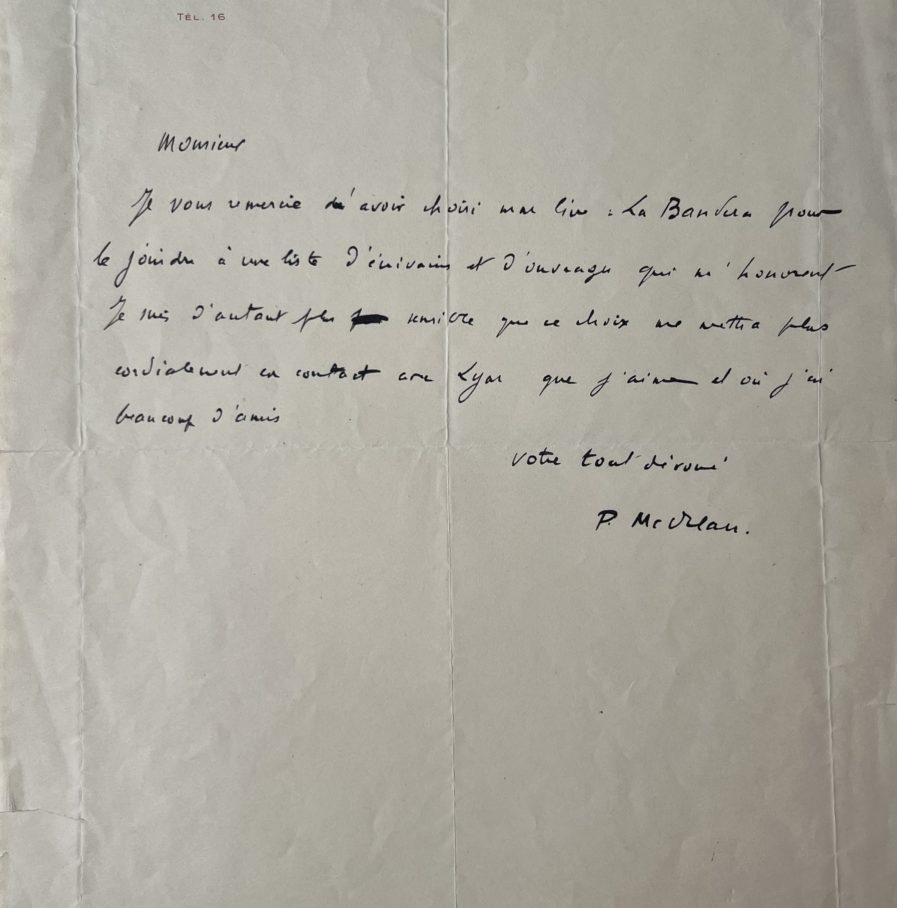 TÉL. 16
Monsieur
Je vous remercie d'avoir choisi mon livre : La Bandera pour
le joindre à une liste d'écrivains et d'ouvrages qui m'honorent
Je suis d'autant plus sensible que ce choix me mettra plus
cordialement en contact avec Lyon que j'aime et où j'ai
beaucoup d'amis
votre tout dévoué
P. Mc Orlan.